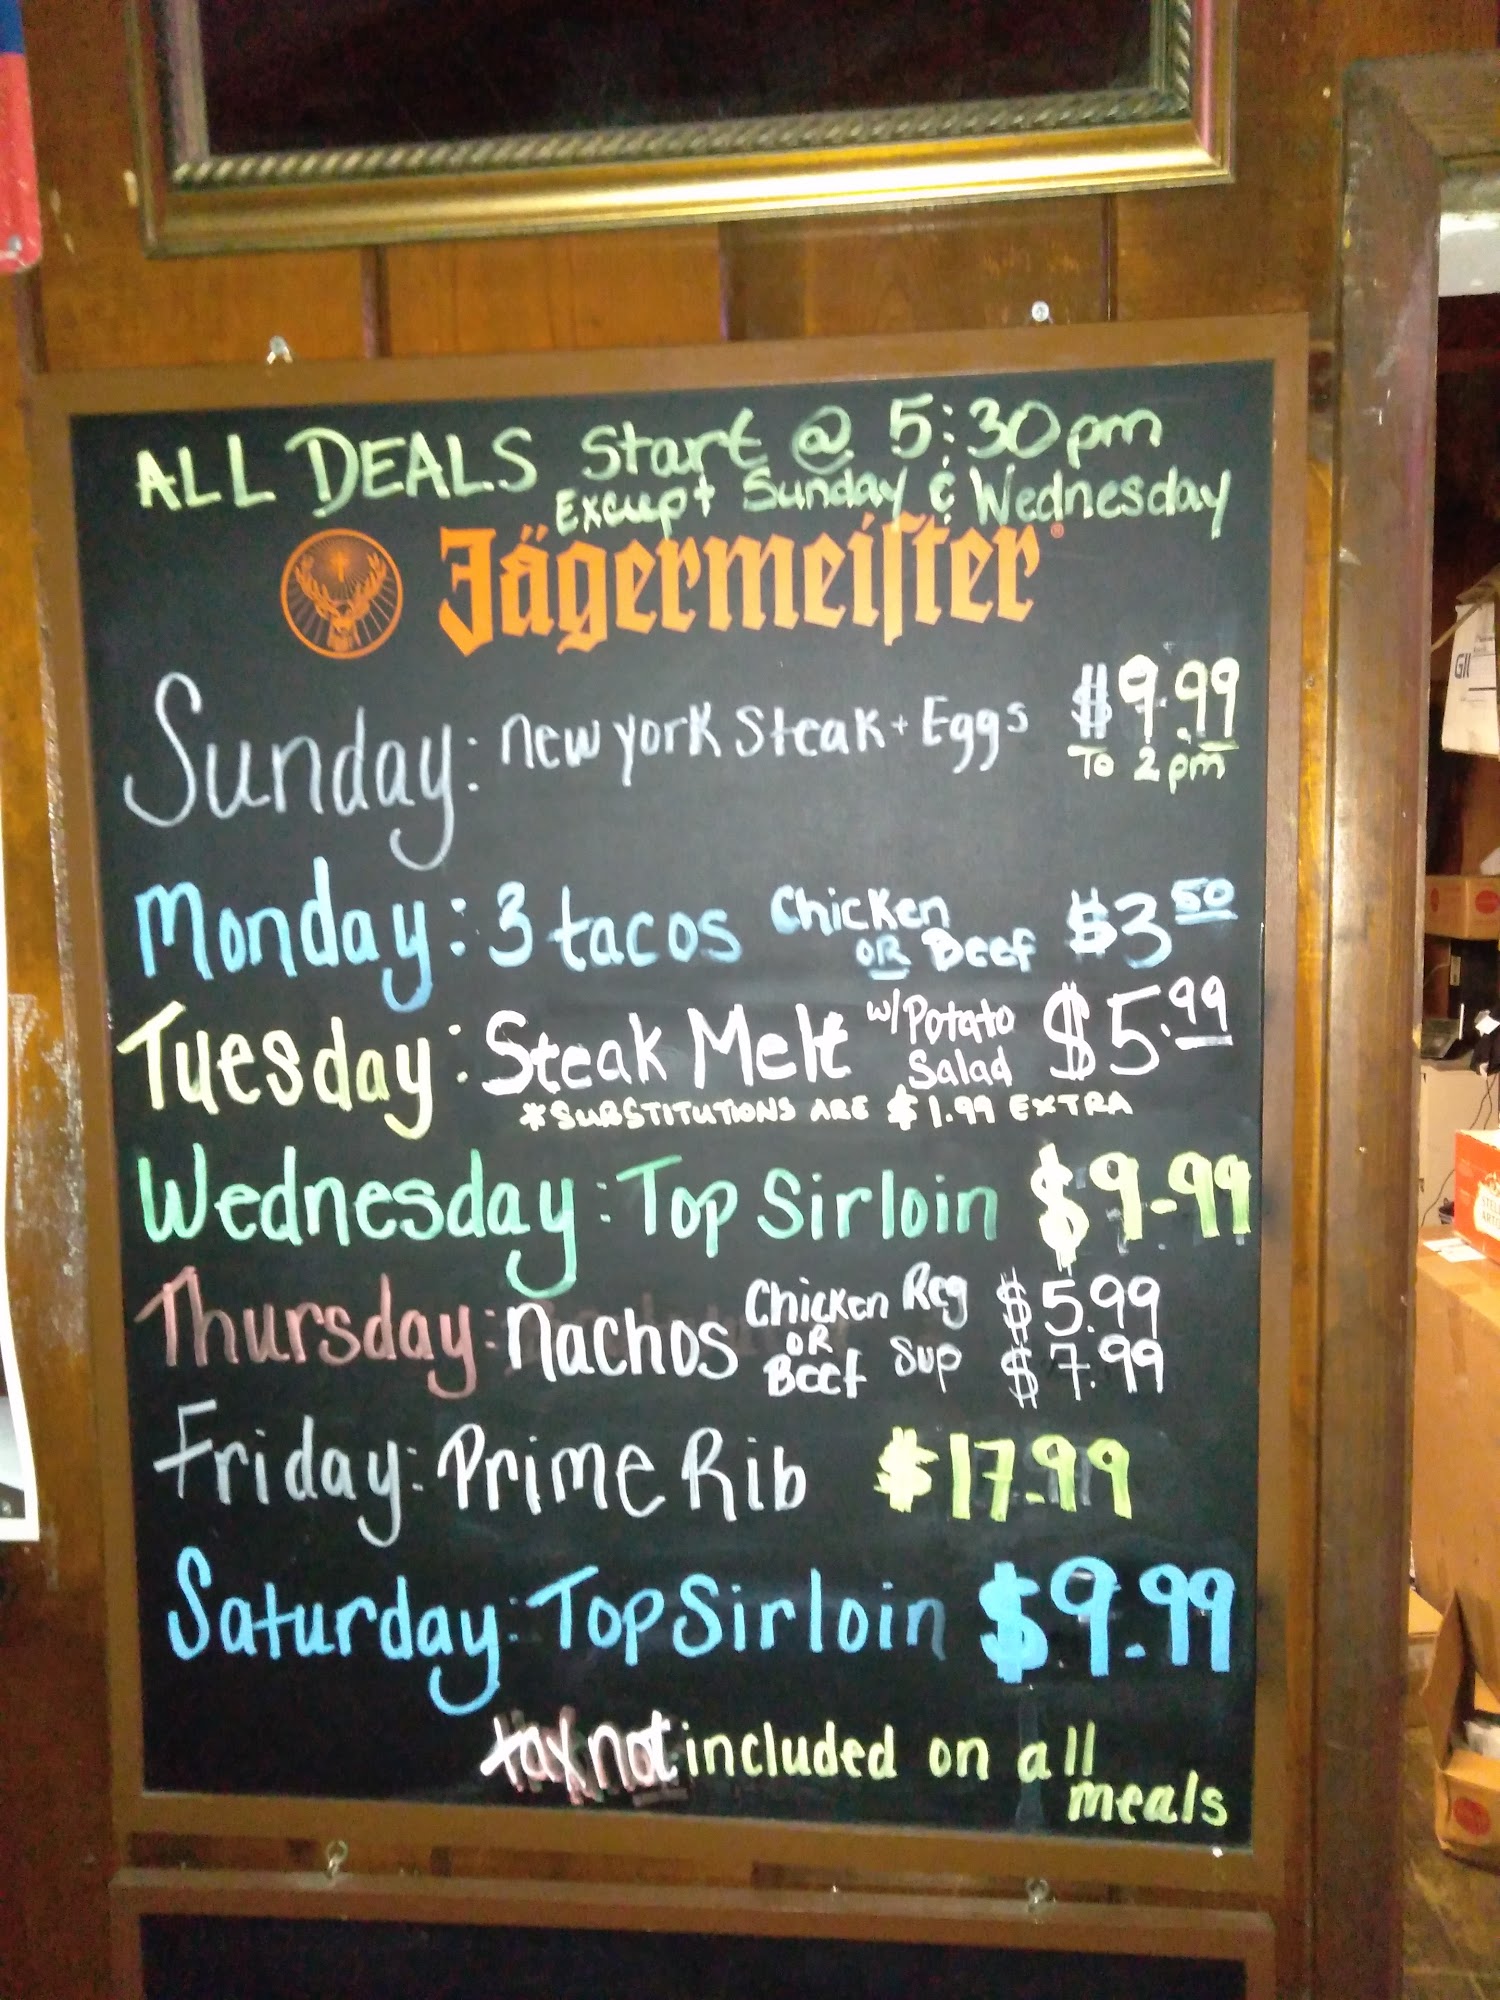 ALL DEALS Start @ 5:30pm
Except Sunday & Wednesday
Jägermeister®
Sunday: new york Steak + Eggs $9.99
To 2pm
Monday: 3 tacos Chicken OR Beef $3 50
Tuesday: Steak Melt w/ Potato Salad $5.99
*SUBSTITUTIONS ARE $1.99 EXTRA
Wednesday: Top Sirloin $9.99
Thursday: nachos Chicken OR Beef Reg $5.99
Sup $7.99
Friday: Prime Rib $17.99
Saturday: Top Sirloin $9.99
tax not included on all
meals